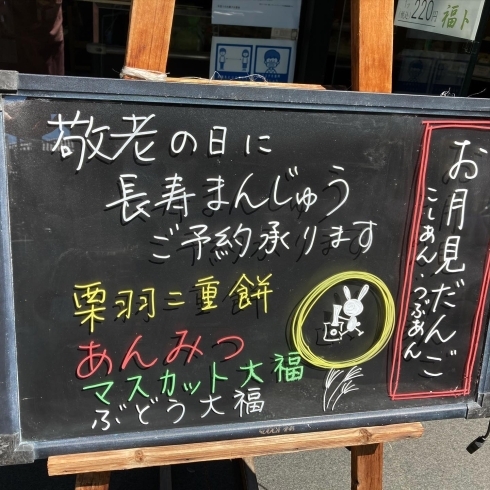 敬老の日に
長寿まんじゅう
ご予約承ります
栗羽二重餅
あんみつ
マスカット大福
ぶどう大福
お月見だんご
こしあん・つぶあん
220円
福ト